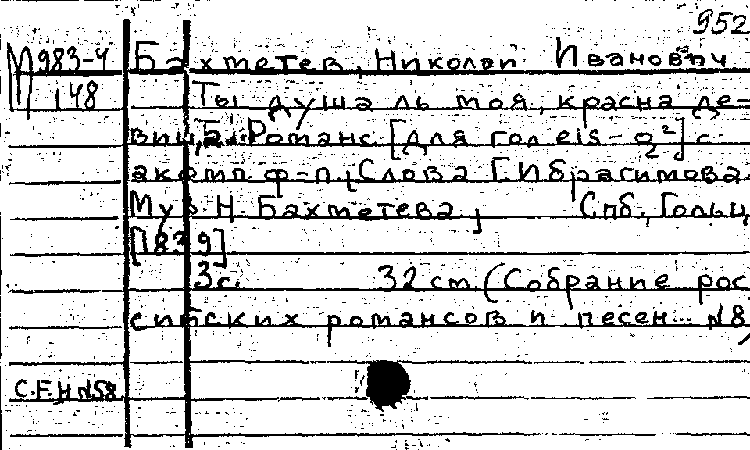 952
М 983-4
148
Бахметев, Николай Иванович
Ты душа ль моя, красна де-
вица. Романс [для гол. eis-g²] с
акомп. ф-п. Слова Г. Ибрагимова
Муз. Н. Бахметева, Спб, Гольц
[1839]
3с. 32 см (Собрание рос
сийских романсов и песен... №8,
С.Е.Н №58